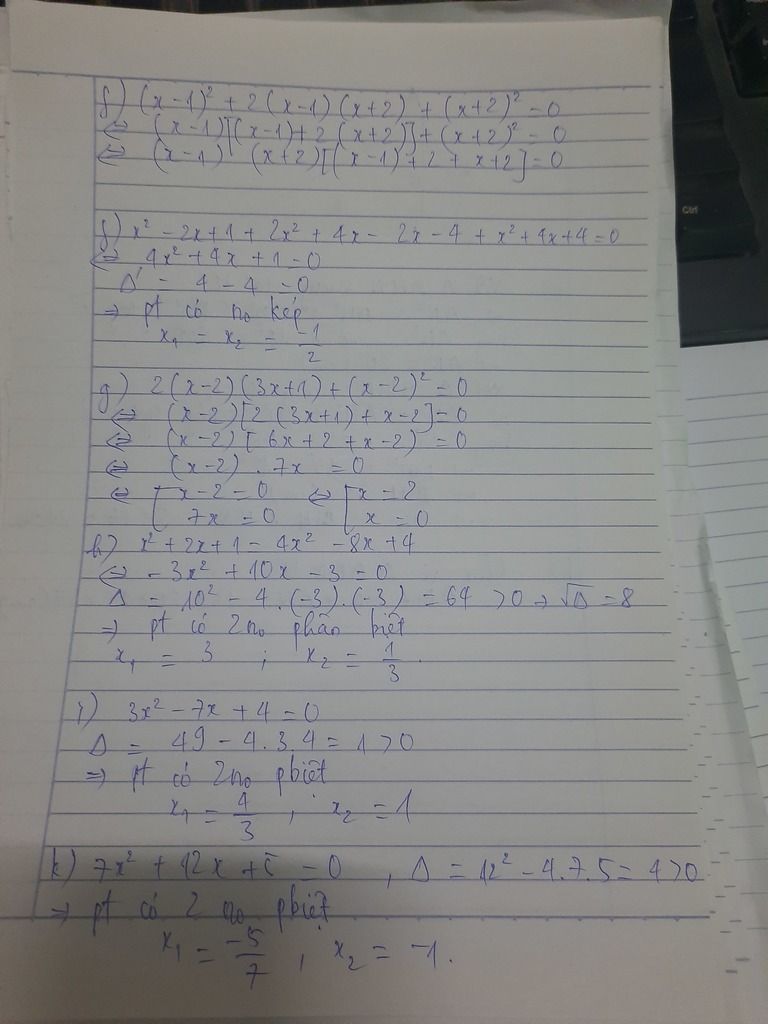 f) (x-1)² + 2(x-1)(x+2) + (x+2)² = 0
⇔ (x-1)[(x-1)+2(x+2)]+(x+2)² = 0
⇔ (x-1) (x+2)[(x-1)+2+x+2]=0
f) x² - 2x+1 + 2x² + 4x - 2x - 4 + x²+4x+4=0
⇔ 4x²+4x+1=0
Δ' = 4 - 4 = 0
⇒ pt có no kép
x₁ = x₂ = -1/2
g) 2(x-2)(3x+1)+(x-2)² = 0
⇔ (x-2)[2(3x+1)+x-2]=0
⇔ (x-2)[6x+2+x-2) = 0
⇔ (x-2).7x = 0
⇔ [x-2=0 ⇔ [x=2
7x = 0 x = 0
h) x²+2x+1 = 4x² -8x+4
⇔ -3x² + 10x - 3 = 0
Δ = 10² - 4.(-3).(-3) = 64 >0 → √Δ = 8
⇒ pt có 2no phân biệt
x₁ = 3 ; x₂ = 1/3.
i) 3x² - 7x + 4 = 0
Δ = 49 - 4.3.4 = 1 >0
⇒ pt có 2no pbiệt
x₁ = 4/3 , x₂ = 1
k) 7x² + 12x + 5 = 0 , Δ = 12² - 4.7.5 = 4>0
⇒ pt có 2 no pbiệt
x₁ = -5/7 , x₂ = -1.
Ctrl